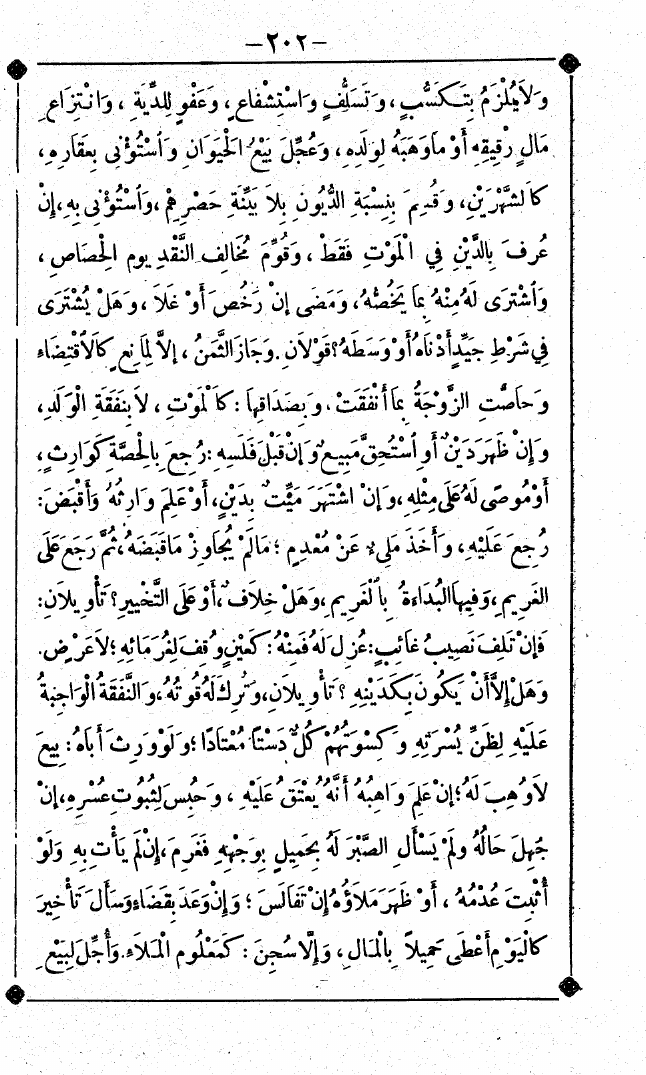 -٢٠٢-
وَلاَ يُلْزَمُ بِتَكَسُّبٍ، وَتَسَلُّفٍ وَاسْتِشْفاعٍ، وَعَفْوٍ لِلدِّيَةِ، وَانْتِزَاعِ
مَالِ رَقِيقِهِ أَوْ مَا وَهَبَهُ لِوَلَدِهِ، وَعُجِّلَ بَيْعُ الْحَيَوَانِ وَاُسْتُؤْنِى بِعَقَارِهِ،
كَالشَّهْرَيْنِ، وَقُسِمَ بِنِسْبَةِ الدُّيُونِ بِلاَ بَيِّنَةِ حَصْرِهِمْ، وَاُسْتُؤْنِىَ بِهِ، إِنْ
عُرِفَ بِالدَّيْنِ فِي الْمَوْتِ فَقَطْ، وَقُوِّمَ مُخَالِفُ النَّقْدِ يوم الْحِصَاصِ،
وَاُشْتُرِى لَهُ مِنْهُ بِمَا يَخُصُّهُ، وَمَضَى إِنْ رَخُصَ أَوْ غَلاَ، وَهَلْ يُشْتَرَى
فِي شَرْطِ جَيِّدٍ أَدْنَاهُ أَوْ وَسَطَهُ؟ قَوْلاَنِ. وَجَازَ الثَّمَنُ، إِلاَّ لِمَانِعٍ كَالاقْتِضَاءِ
وَحَاصَّتِ الزَّوْجَةُ بِمَا أَنْفَقَتْ، وَبِصَدَاقِهَا: كَالْمَوْتِ، لاَ بِنَفَقَةِ الْوَلَدِ،
وَإِنْ ظَهَرَ دَيْنٌ أَوِ اُسْتُحِقَّ مَبِيعٌ وَإِنْ قَبْلَ فَلَسِهِ: رُجِعَ بِالْحِصَّةِ كَوَارِثٍ،
أَوْ مُوصًى لَهُ عَلَى مِثْلِهِ، وَإِنْ اشْتَهَرَ مَيِّتٌ بِدَيْنٍ، أَوْ عَلِمَ وَارِثُهُ وَأَقْبَضَ:
رُجِعَ عَلَيْهِ، وَأُخِذَ مَلِيءٌ عَنْ مُعْدِمٍ؛ مَالَمْ يُجَاوِزْ مَا قَبَضَهُ، ثُمَّ رَجَعَ عَلَى
الغَرِيمِ، وَفِيهَا الْبُدَاءَةُ بِالْغَرِيمِ، وَهَلْ خِلاَفٌ، أَوْ عَلَى التَّخْيِيرِ؟ تَأْوِيلاَنِ:
فَإِنْ تَلِفَ نَصِيبُ غَائِبٍ: عُزِلَ لَهُ فَمِنْهُ: كَعَيْنٍ وُقِفَ لِغُرَمَائِهِ؛ لاَ عَرْضٍ.
وَهَلْ إِلاَّ أَنْ يَكُونَ بِكَدَيْنِهِ؟ تَأْوِيلاَنِ، وَتُرِكَ لَهُ قُوتُهُ، وَالنَّفَقَةُ الْوَاجِبَةُ
عَلَيْهِ لِظَنِّ يُسْرَتِهِ وَكِسْوَتُهُمْ كُلٌّ دَسْتًا مُعْتَادًا؛ وَلَوْ وَرِثَ أَبَاهُ: بِيعَ
لاَ وُهِبَ لَهُ؛ إِنْ عَلِمَ وَاهِبُهُ أَنَّهُ يُعْتَقُ عَلَيْهِ، وَحُبِسَ لِثُبُوتِ عُسْرِهِ، إِنْ
جُهِلَ حَالُهُ وَلَمْ يَسْأَلِ الصَّبْرَ لَهُ بِحَمِيلٍ بِوَجْهِهِ فَغَرِمَ، إِنْ لَمْ يَأْتِ بِهِ وَلَوْ
أُثْبِتَ عُدْمُهُ، أَوْ ظَهَرَ مَلاَؤُهُ إِنْ تَفَالَسَ؛ وَإِنْ وَعَدَ بِقَضَاءٍ وَسَأَلَ تَأْخِيرَ
كَالْيَوْمِ أَعْطَى حَمِيلاً بِالْمَالِ، وَإِلاَّ سُجِنَ: كَمَعْلُومِ الْمَلاَءِ. وَأُجِّلَ لِبَيْعِ